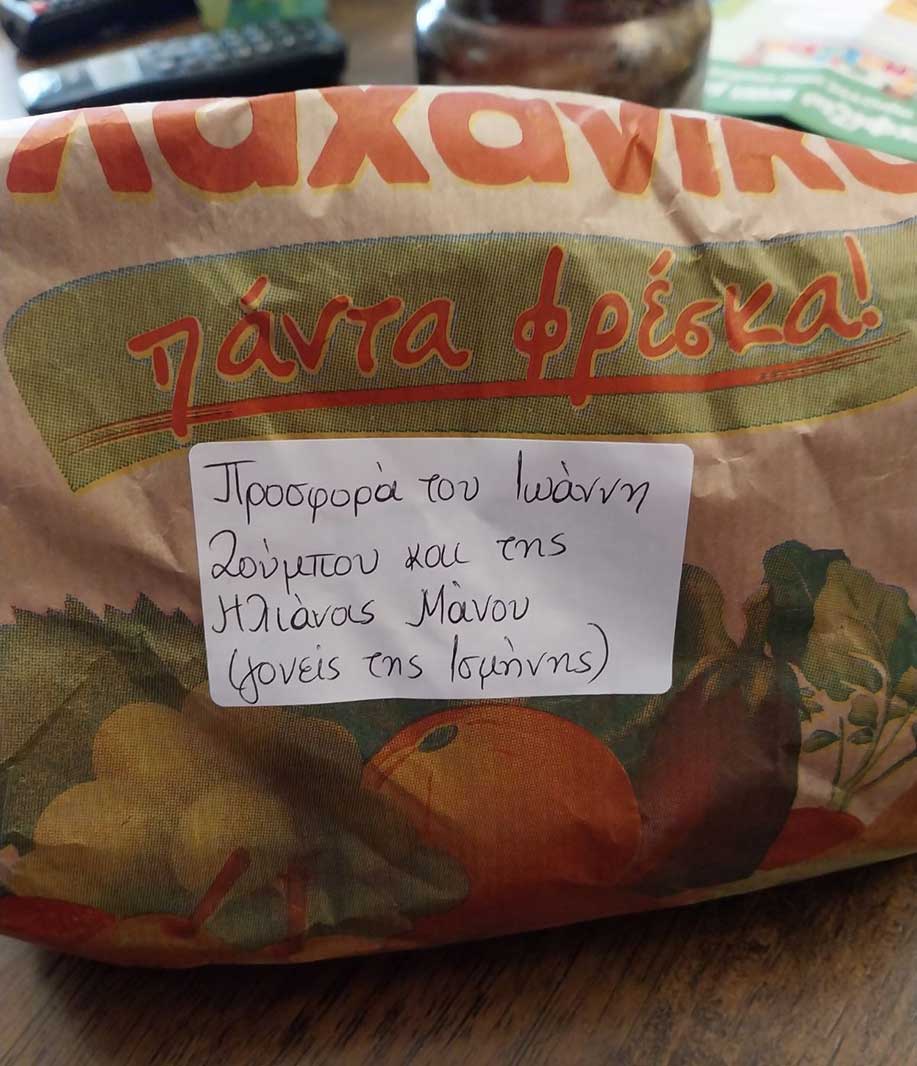 λαχανικά
πάντα φρέσκα!
Προσφορὰ του Ιωὰννη
Ζούμπου και της
Ηλιὰνας Μὰνου
(γονείς της Ισμὴνης)